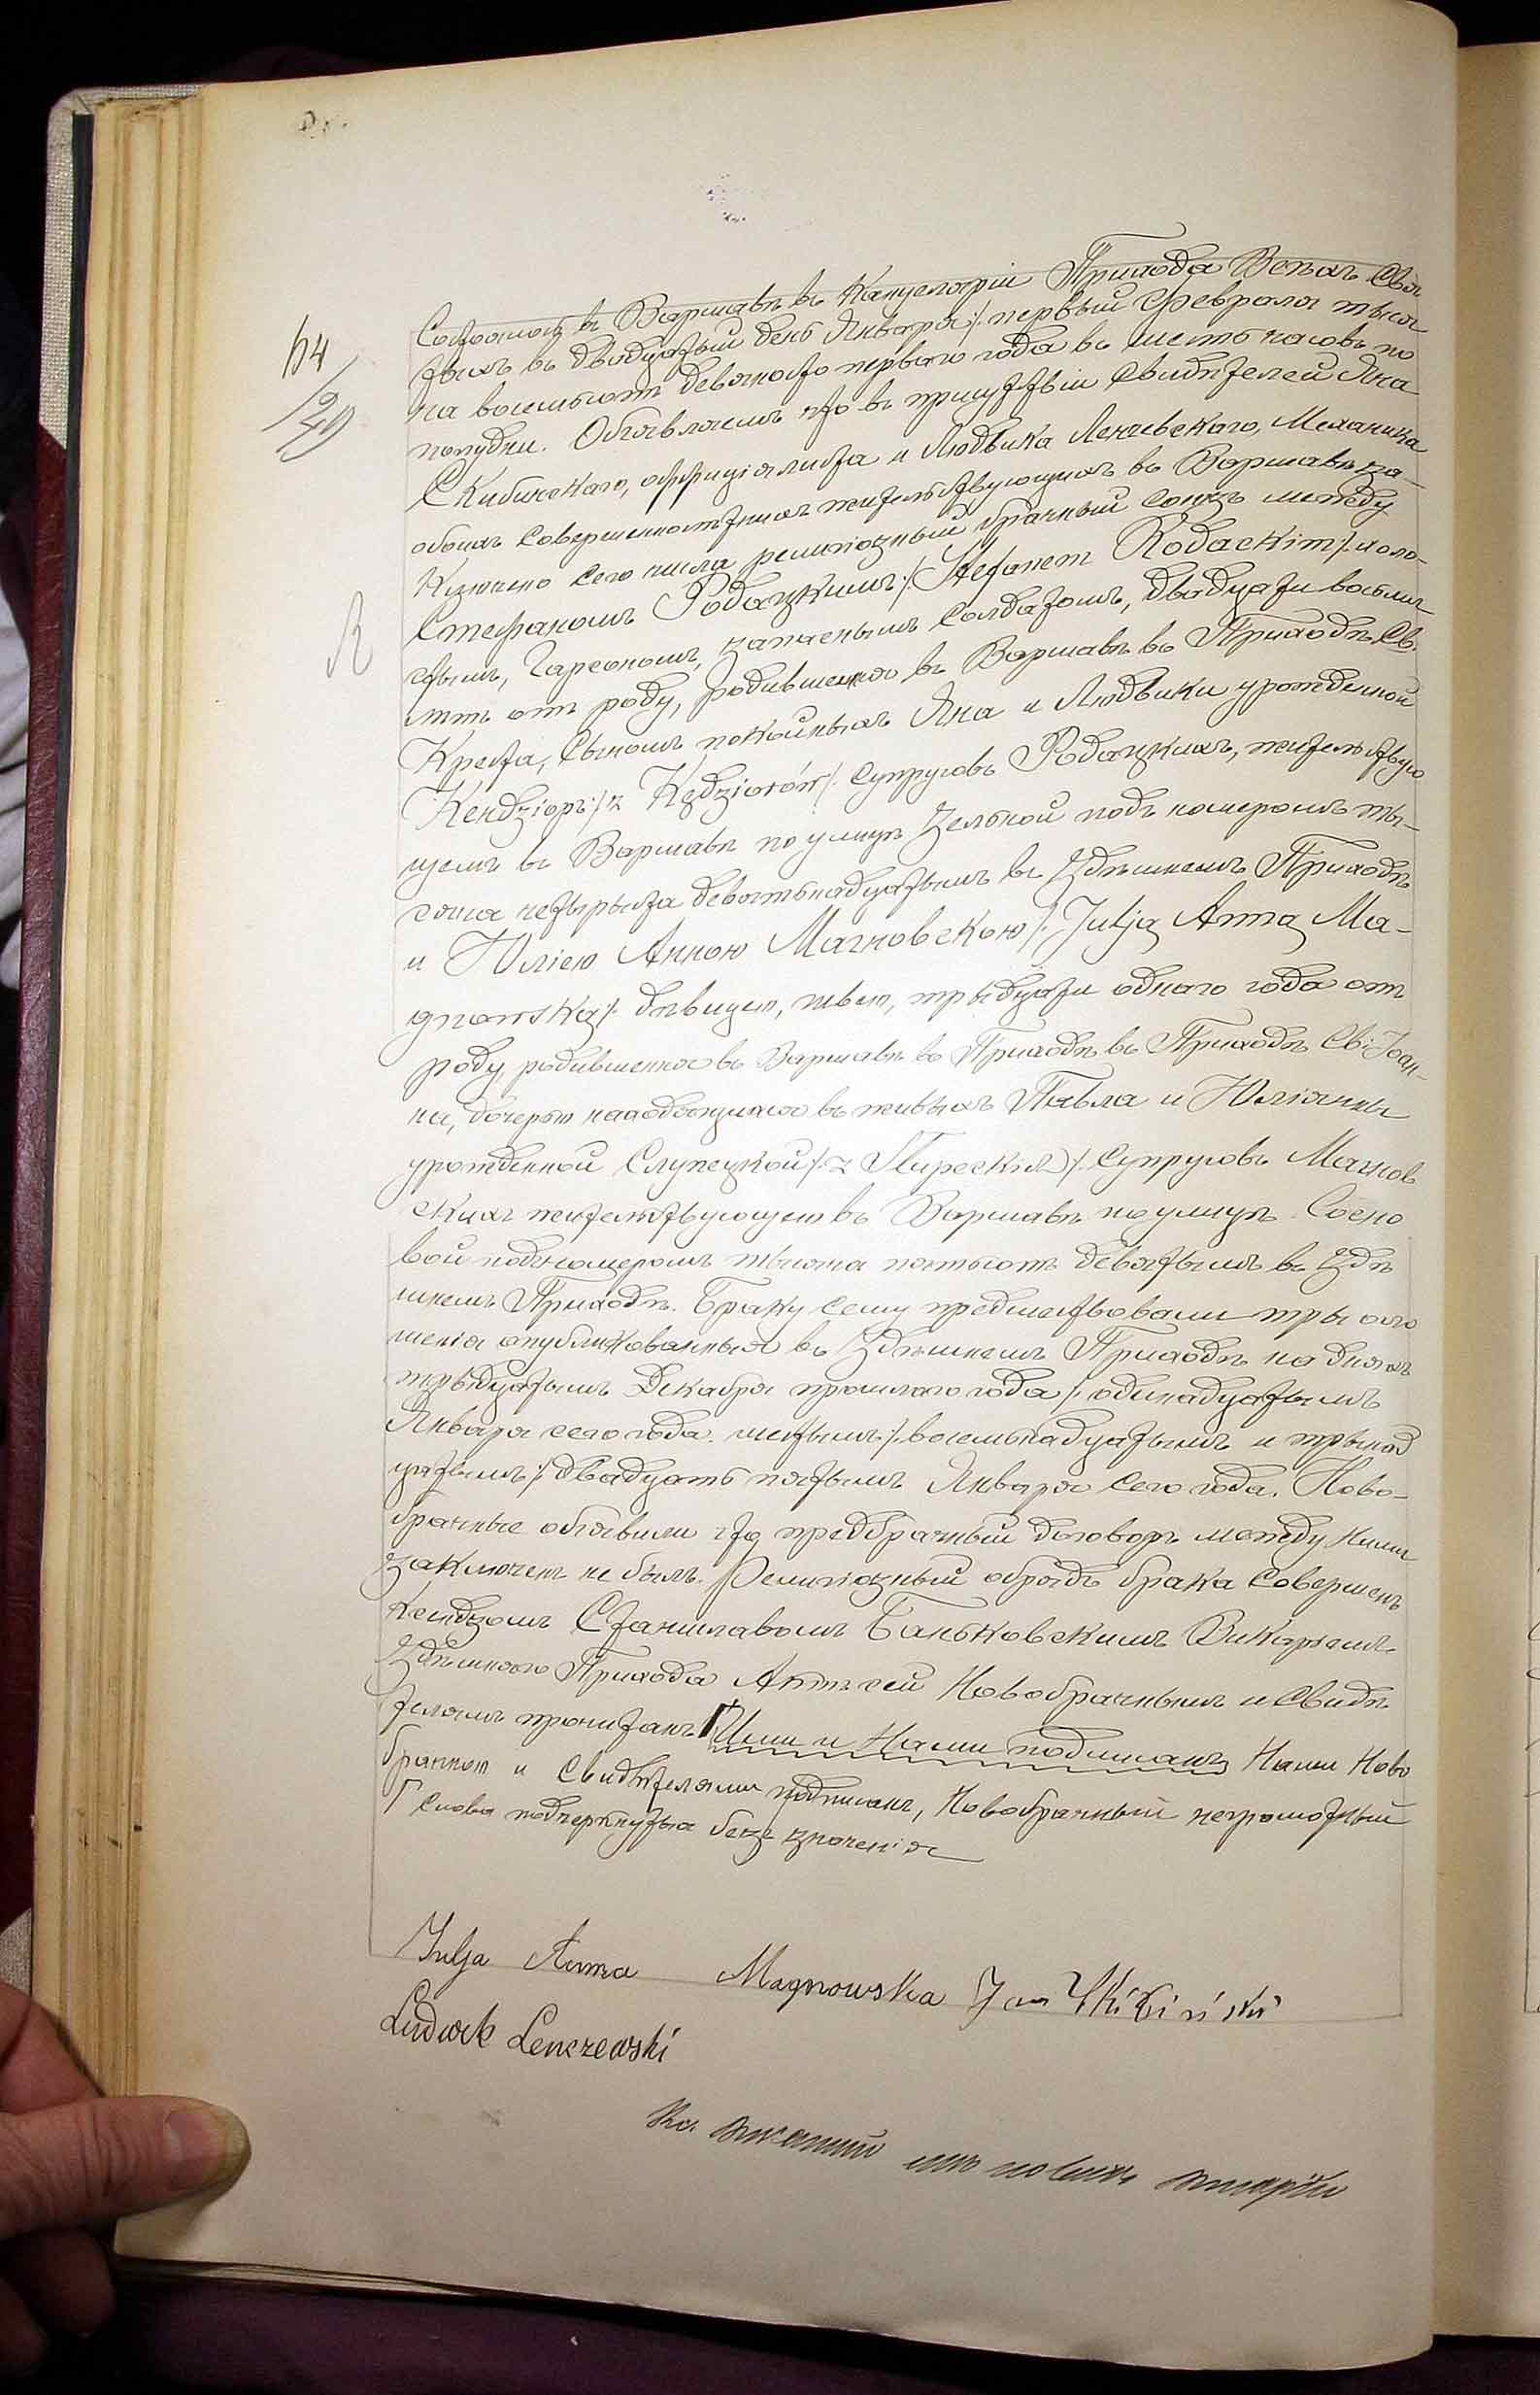 54
/29
R
Состоялось въ Варшавѣ въ Канцеляріи Прихода Всѣхъ Свя
тыхъ въ двадцатый день Января /: первый Февраля тыся
ча восемьсотъ девяносто перваго года въ шесть часовъ по
полудни. Объявляемъ что въ присутствіи свидѣтелей Яна
Скибинскаго, оффиціялиста и Людвика Ленчевскаго, Механика
обоихъ совершеннолѣтнихъ жительствующихъ въ Варшавѣ за-
ключено сего числа религіозный брачный союзъ между
Стефаномъ Родацкимъ /: Stefanem Rodackim /: холо-
стымъ, запаснымъ солдатомъ, двадцати восьми
лѣтъ отъ роду, родившемся въ Варшавѣ въ Приходѣ Св.
Креста, сыномъ покойныхъ Яна и Людвики урожденной
Кендзіоръ /: z Kędziorów /: супруговъ Родацкихъ, жительствую
щемъ въ Варшавѣ по улицѣ Зельной подъ номеромъ ты-
сяча четырыста девятьнадцатымъ въ Здѣшнемъ Приходѣ
и Юліею Анною Магновскою /: Julją Anną Ma-
gnowską /: дѣвицею, швею, трыдцати однаго года отъ
роду, родившеюся въ Варшавѣ въ Приходѣ въ Приходѣ Св: Іоан-
на, дочерью находящихся въ живыхъ Павла и Юліянны
урожденной Слупецкой /: z супруговъ Магнов
скихъ жительствующею въ Варшавѣ по улицѣ Сосно
вой подъ номеромъ тысяча пятьсотъ девятымъ въ Здѣ
шнемъ Приходѣ. Браку сему предшествовали три огла
шенія опубликованныя въ Здѣшнемъ Приходѣ на дняхъ
трыдцатымъ Декабря прошлаго года /: одинадцатымъ
Января сего года. шестымъ /: восемьнадцатымъ и трынад
цатымъ /: двадцать пятымъ Января сего года. Ново-
брачные объявили что предбрачный договоръ между ними
заключенъ не былъ. Религіозный обрядъ брака совершенъ
Ксендзомъ Станиславомъ Баньковскимъ Викаріемъ
Здѣшняго Прихода Актъ сей Новобрачнымъ и Свидѣ
телямъ прочитанъ Г Ими и Нами подписанъ Нами Ново
брачною и Свидѣтелями подписанъ, Новобрачный неграмотный
Г Слова подчеркнутыя безъ значенія
Julja Anna Magnowska Jan Skibiński
Ludwik Lenczewski